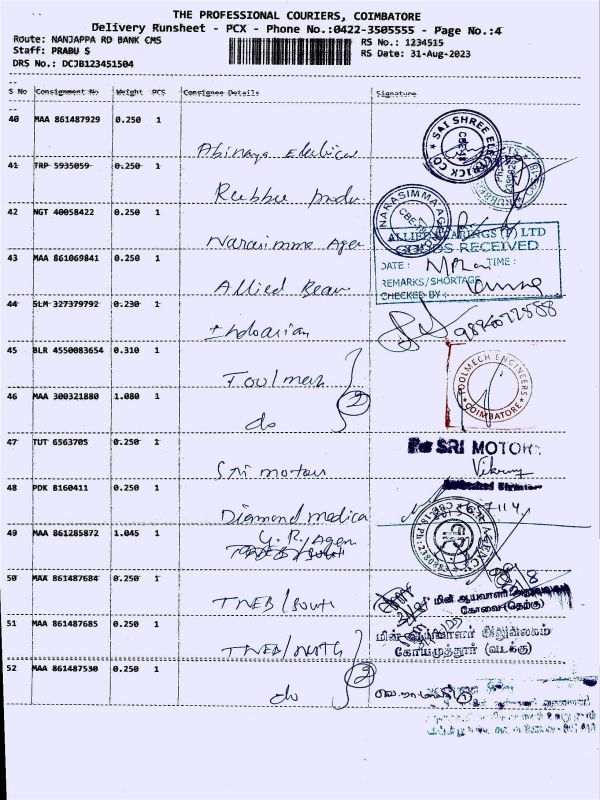 THE PROFESSIONAL COURIERS, COIMBATORE
Delivery Runsheet - PCX - Phone No.:0422-3505555 - Page No.:4
Route: NANJAPPA RD BANK CMS
RS No.: 1234515
Staff: PRABU S
RS Date: 31-Aug-2023
DRS No.: DCJB123451504
S No Consignment No Weight PCS Consignee Details Signature
40 MAA 861487929 0.250 1
Abinaya Electrical
SAI SHREE ELECTRICK CO
41 TRP 5935059 0.250 1
Rubber produ
42 NGT 40058422 0.250 1
Narasimma Agen
NARASIMMA AGEN
ALLIED BEARINGS (P) LTD
GOODS RECEIVED
43 MAA 861069841 0.250 1
Allied Bear
DATE : TIME :
REMARKS/SHORTAGE
CHECKED BY :
44 SLM 327379792 0.230 1
Indoasian
45 BLR 4550083654 0.310 1
Toolmech
TOOLMECH ENGINEERS
COIMBATORE
46 MAA 300321880 1.080 1
do 2
47 TUT 6563705 0.250 1
Sri motors
For SRI MOTORS
48 PDK 8160411 0.250 1
Diamond medica
49 MAA 861285872 1.045 1
Y.R. Agen
50 MAA 861487684 0.250 1
TNEB/South
மின் ஆய்வாளர்
கோவை (தெற்கு)
51 MAA 861487685 0.250 1
TNEB/North
மின் ஆய்வாளர் அலுவலகம்
கோயமுத்தூர் (வடக்கு)
52 MAA 861487530 0.250 1
do 2